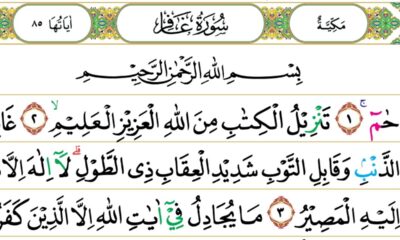 مَكِّيَّةٌ سُوْرَةُ غَافِر اٰيَاتُهَا ٨٥
بِسْمِ اللّٰهِ الرَّحْمٰنِ الرَّحِيْمِ
حٰمٓ ۚ ١ تَنْزِيْلُ الْكِتٰبِ مِنَ اللّٰهِ الْعَزِيْزِ الْعَلِيْمِ ۙ ٢
الذَّنْۢبِ وَقَابِلِ التَّوْبِ شَدِيْدِ الْعِقَابِ ذِى الطَّوْلِ ۗ لَآ اِلٰهَ اِلَّا
اِلَيْهِ الْمَصِيْرُ ٣ مَا يُجَادِلُ فِيْٓ اٰيٰتِ اللّٰهِ اِلَّا الَّذِيْنَ